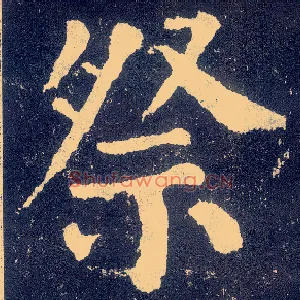 祭
Shufawang.cn